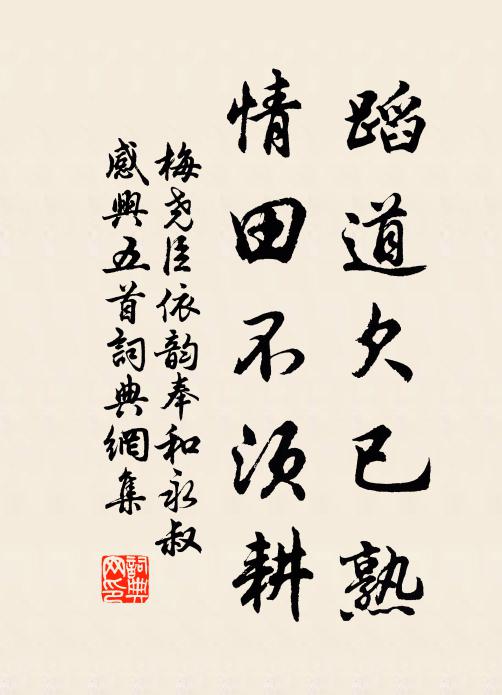 蹈道久已熟
情田不须耕
梅尧臣依韵奉和永叔
感興五首詞典網集
詞典
网印